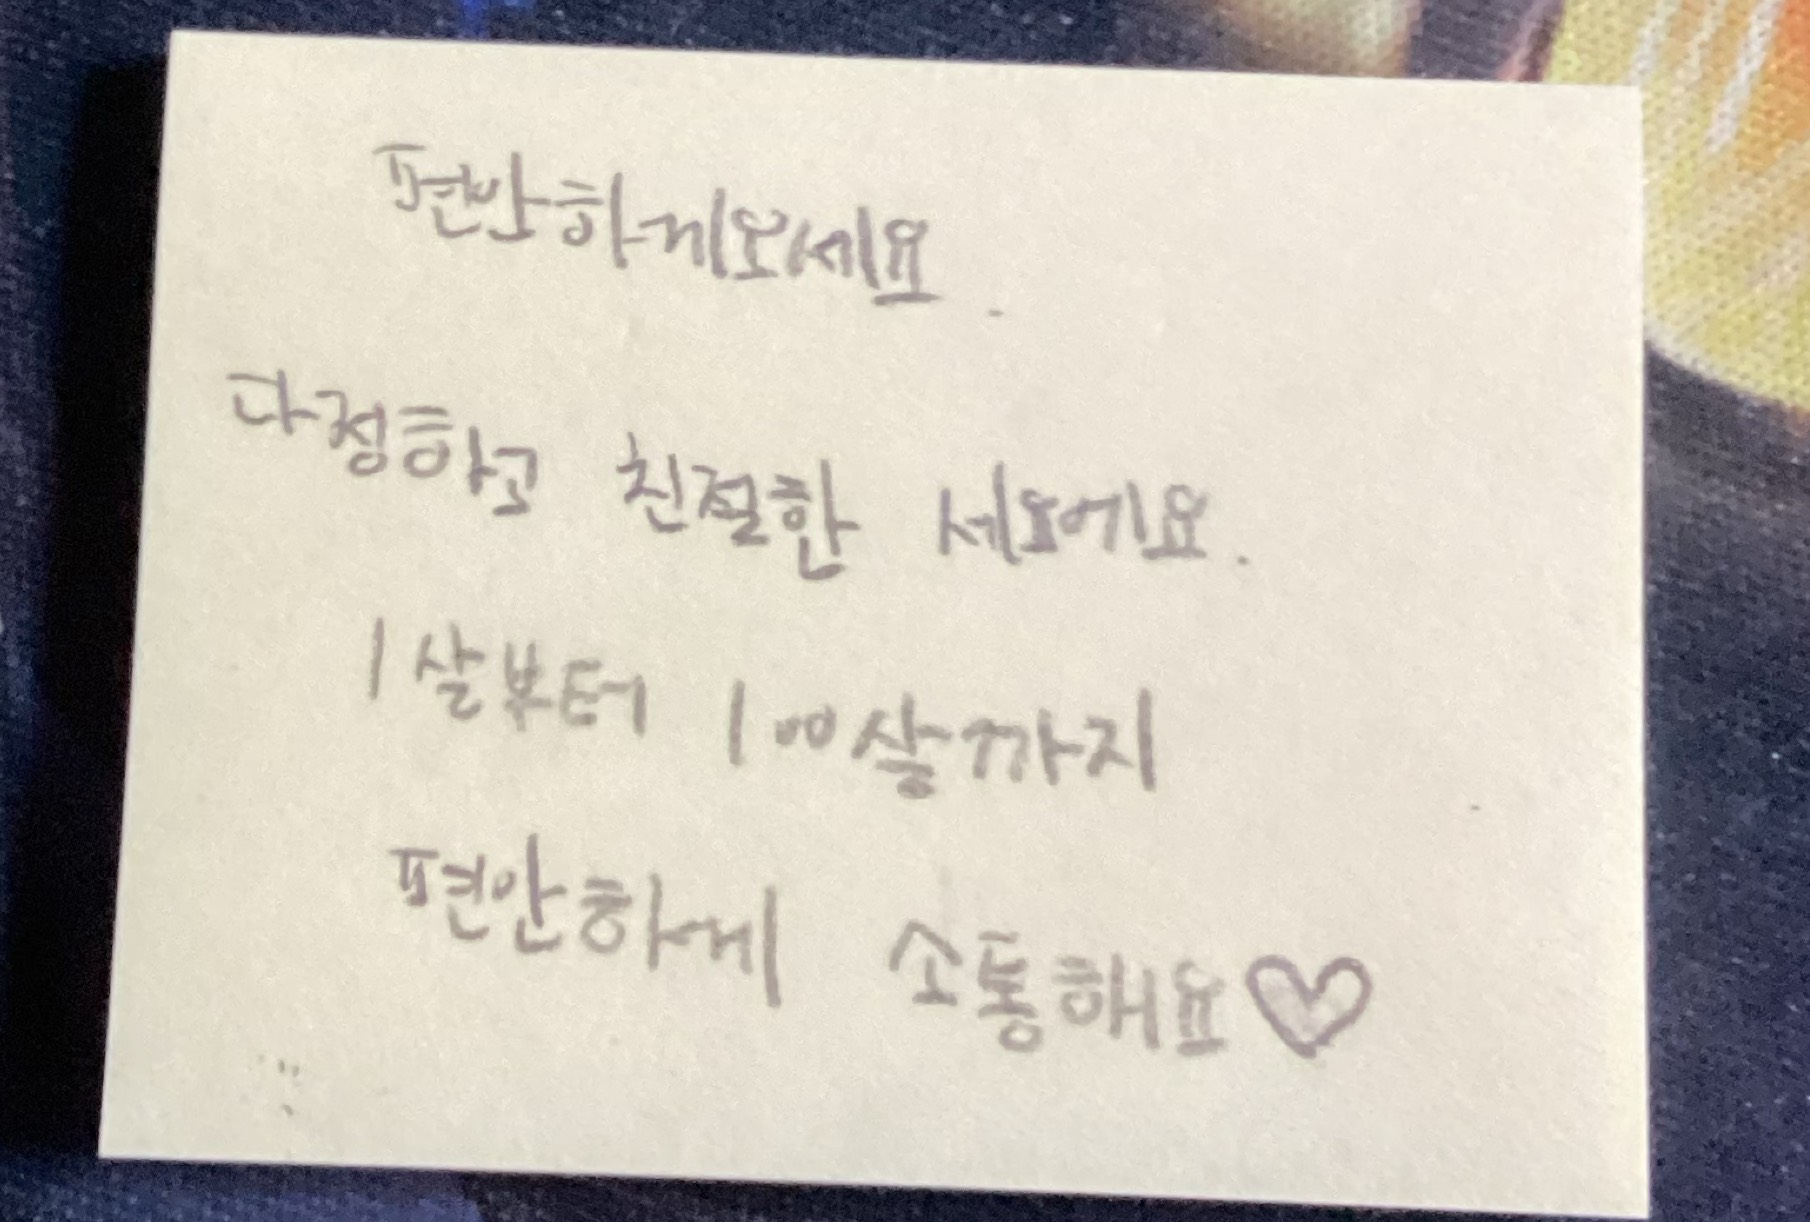 편안하게오세요.
다정하고 친절한 세요에요.
1살부터 100살까지
편안하게 소통해요♡